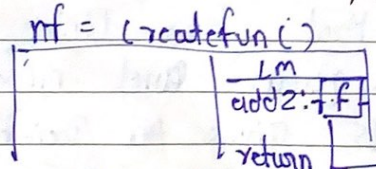 nf = createfun()
LM
add2: f.f
return